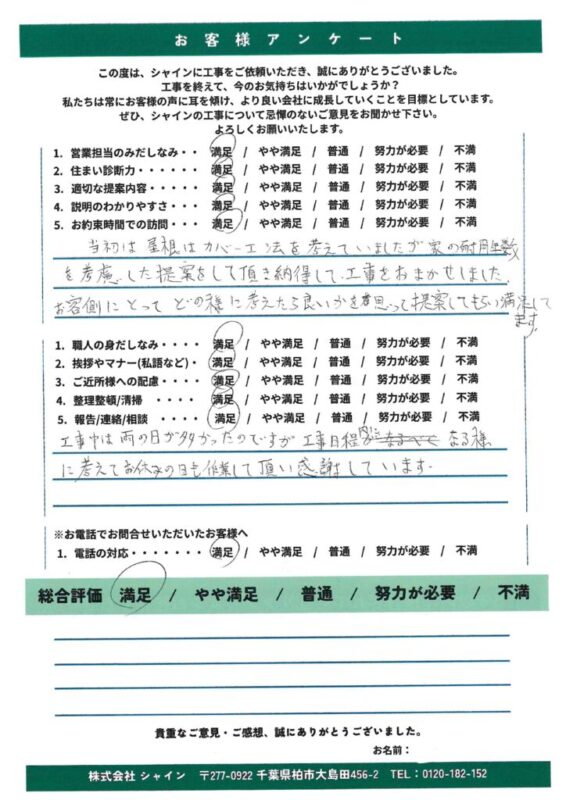 お客様アンケート
この度は、シャインに工事をご依頼いただき、誠にありがとうございました。
工事を終えて、今のお気持ちはいかがでしょうか？
私たちは常にお客様の声に耳を傾け、より良い会社に成長していくことを目標としています。
ぜひ、シャインの工事について忌憚のないご意見をお聞かせ下さい。
よろしくお願いいたします。
1. 営業担当のみだしなみ・・ 満足 / やや満足 / 普通 / 努力が必要 / 不満
2. 住まい診断力・・・・・・ 満足 / やや満足 / 普通 / 努力が必要 / 不満
3. 適切な提案内容・・・・・ 満足 / やや満足 / 普通 / 努力が必要 / 不満
4. 説明のわかりやすさ・・・ 満足 / やや満足 / 普通 / 努力が必要 / 不満
5. お約束時間での訪問・・・ 満足 / やや満足 / 普通 / 努力が必要 / 不満
当初は屋根はカバー工法を考えていましたが家の耐用年数
を考慮した提案をして頂き納得して、工事をおまかせしました
お客側にとってどの様に考えたら良いかを思って提案してもらい満足して
ます。
1. 職人の身だしなみ・・・・ 満足 / やや満足 / 普通 / 努力が必要 / 不満
2. 挨拶やマナー(私語など)・ 満足 / やや満足 / 普通 / 努力が必要 / 不満
3. ご近所様への配慮・・・・ 満足 / やや満足 / 普通 / 努力が必要 / 不満
4. 整理整頓/清掃 ・・・・ 満足 / やや満足 / 普通 / 努力が必要 / 不満
5. 報告/連絡/相談 ・・・・ 満足 / やや満足 / 普通 / 努力が必要 / 不満
工事中は雨の日が多かったのですが工事日程内になる様
に考えてお休みの日も作業して頂い感謝しています.
※お電話でお問合せいただいたお客様へ
1. 電話の対応・・・・・・・ 満足 / やや満足 / 普通 / 努力が必要 / 不満
総合評価 満足 / やや満足 / 普通 / 努力が必要 / 不満
貴重なご意見・ご感想、誠にありがとうございました。
お名前：
株式会社 シャイン 〒277-0922 千葉県柏市大島田456-2 TEL：0120-182-152